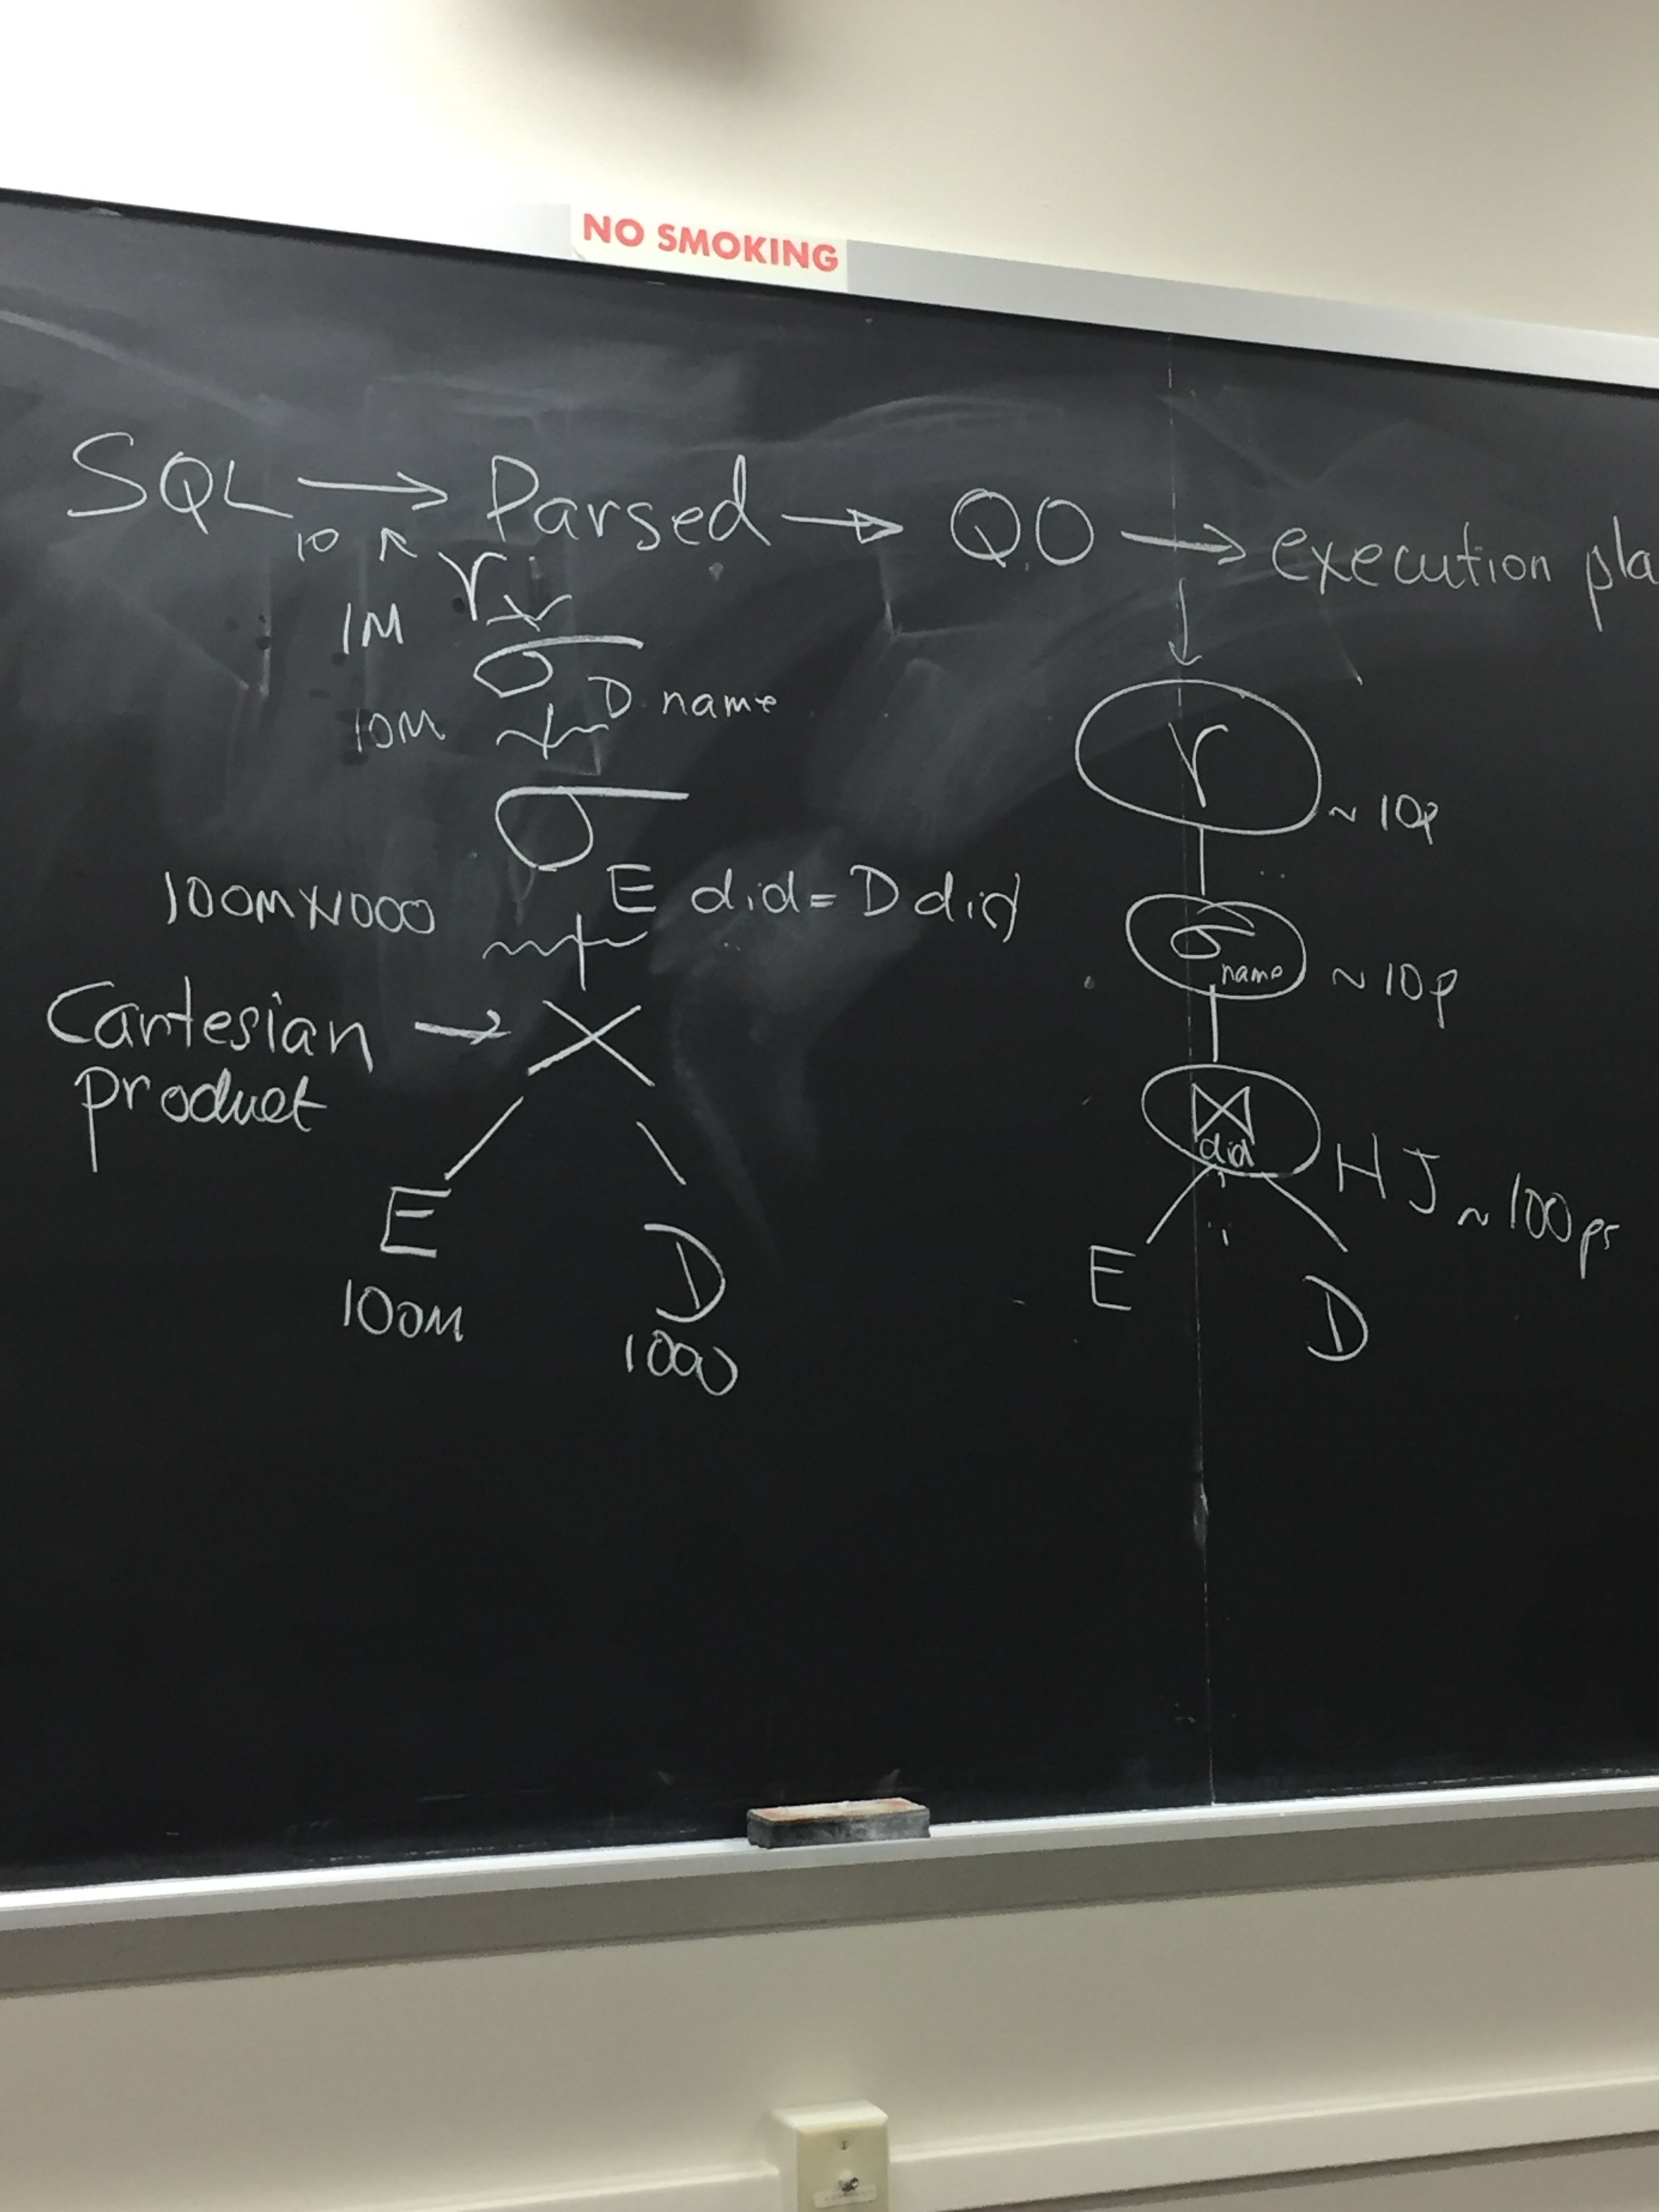 NO SMOKING
SQL → Parsed → QO → execution pla
10 γ
1M
σ D.name
10M
σ E did = D did
100M×1000
Cartesian → ×
product
E D
100M 1000
γ ~ 10p
σ name ~ 10p
⋈ did HJ ~ 100ps
E D